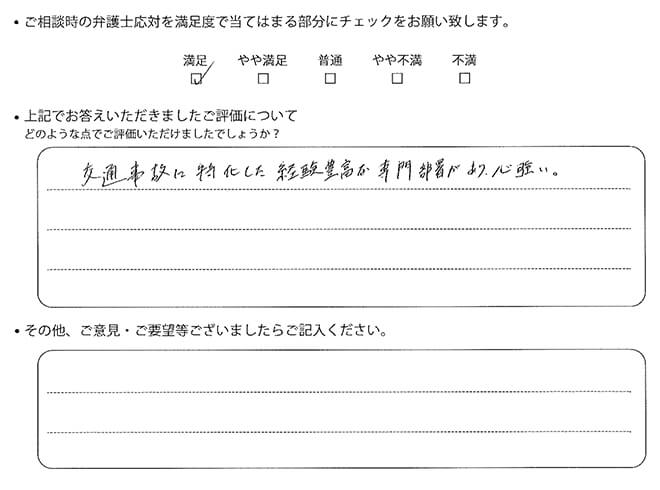 • ご相談時の弁護士応対を満足度で当てはまる部分にチェックをお願い致します。
満足 やや満足 普通 やや不満 不満
• 上記でお答えいただきましたご評価について
どのような点でご評価いただけましたでしょうか？
交通事故に特化した経験豊富な専門部署があり、心強い。
• その他、ご意見・ご要望等ございましたらご記入ください。